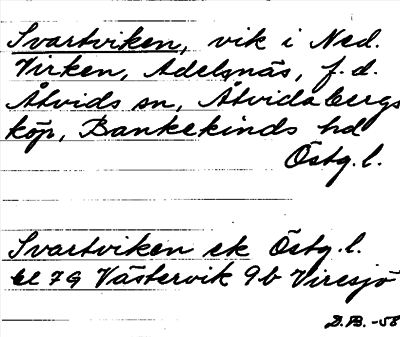 Svartviken, vik i Ned.
Virken, Adelsnäs, f.d.
Åtvids sn, Åtvidabergs
köp, Bankekinds hd
Östg.l.
Svartviken ek Östg.l.
bl 79 Västervik 9b Viresjö
D.B. -58